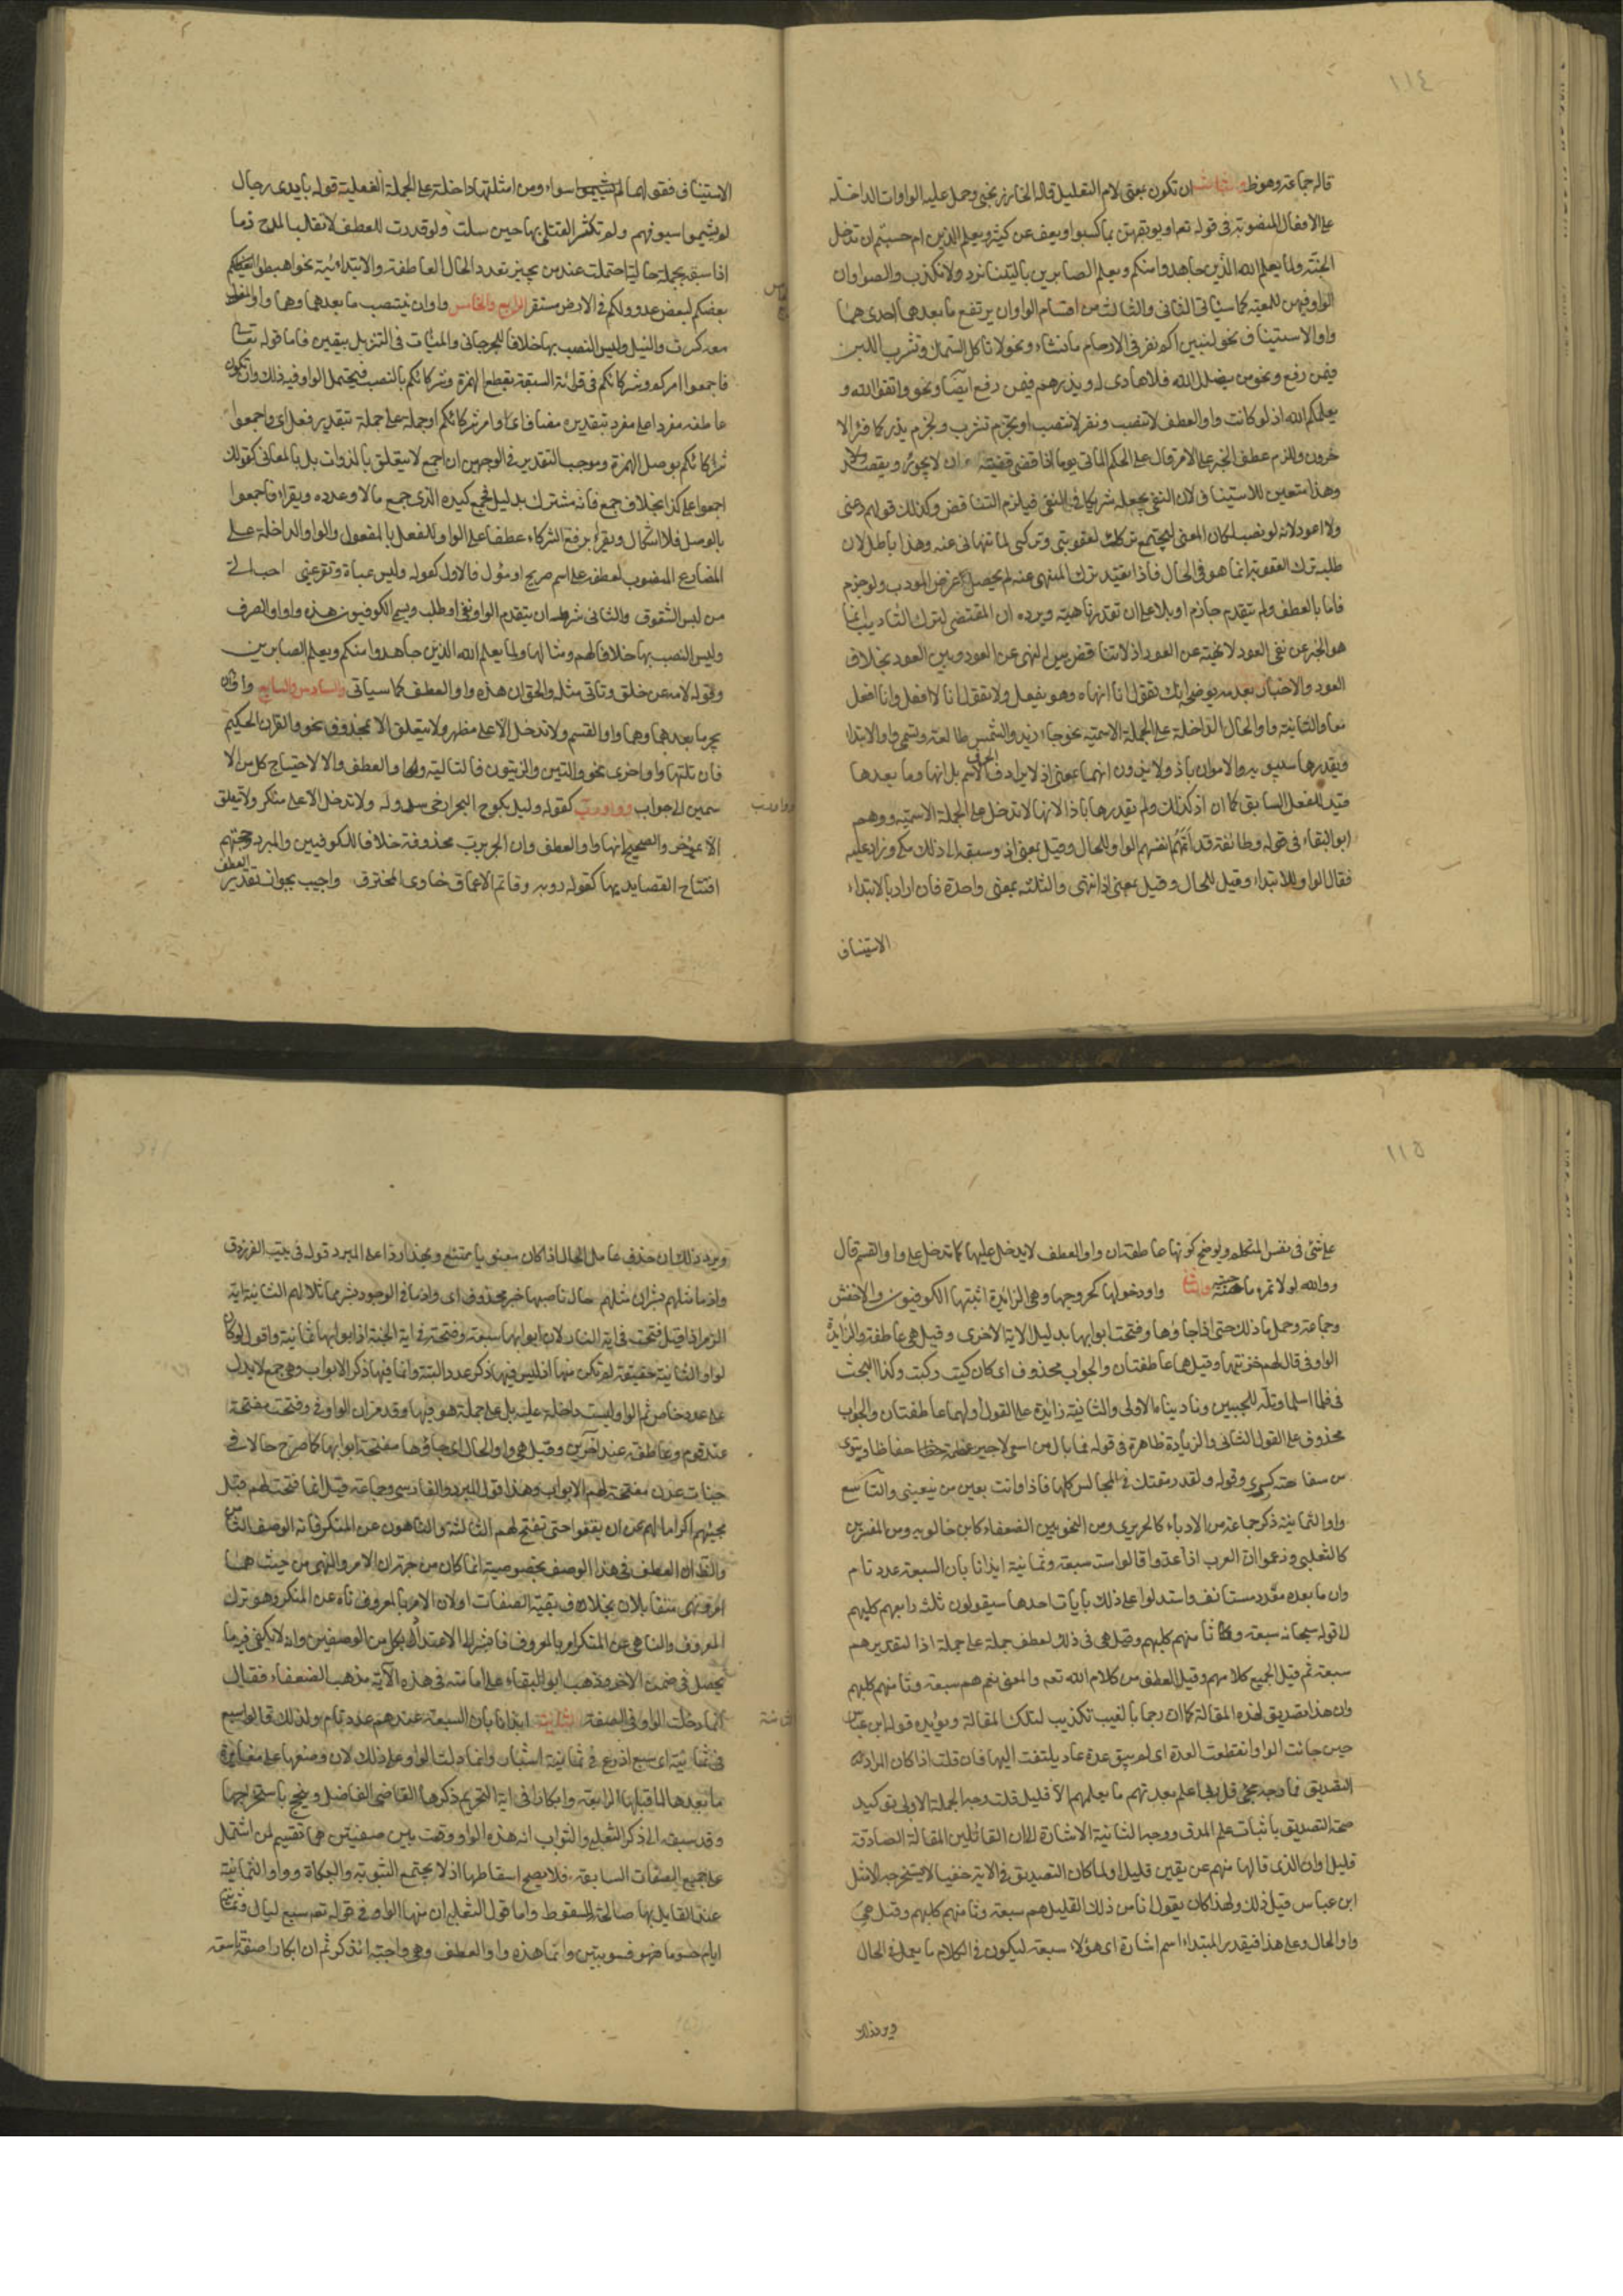 ١١٤
قاله جماعة وهو ظ والثالث ان تكون بمعنى لام التعليل قاله الخارزنجى وحمل عليه الواوات الداخلة
على الافعال المنصوبة فى قوله تع او يوبقهن بما كسبوا ويعف عن كثير ويعلم الذين ام حسبتم ان تدخلوا
الجنة ولما يعلم الله الذين جاهدوا منكم ويعلم الصابرين ياليتنا نرد ولا نكذب والصواب ان
الواو فيهن للمعية كما سياتى الثانى والثالث من اقسام الواو ان يرتفع ما بعدها احدى هما
واو الاستيناف نحو لنبين لكم ونقر فى الارحام ما نشاء ونحو لا تاكل السمك وتشرب اللبن
فيمن رفع ونحو من يضلل الله فلا هادى له ويذرهم فيمن رفع ايضا ونحو واتقوا الله و
يعلمكم الله اذ لو كانت واو العطف لانتصب ونقر لانتصب او يجزم تشرب ويجزم يذر كما قرا الا
خرون وللزم عطف الخبر على الامر قال على الحكم الماتى يوما اذا قضى قضيته ان لا يجور ويقصد
وهذا متعين للاستيناف لان النفى يجعله شريكا فى النفى فيلزم التناقض وكذلك قولهم دعنى
ولا اعود لانه لو نصب لكان المعنى ليجتمع تركك لعقوبتى وتركى لما تنهانى عنه وهذا باطل لان
طلبه ترك العقوبة انما هو فى الحال فاذا تقيد ترك المنهى عنه لم يحصل غرض المودب ولو جزم
فاما بالعطف ولم يتقدم جازم او بلا على ان تقدر ناهية ويرده ان المقتضى لترك التاديب انما
هو الخبر عن نفى العود لا نهيه عن العود اذ لا تناقض بين النهى عن العود وبين العود بخلاف
العود والاخبار بعدمه يوضحه انك تقول انا انهاه وهو يفعل ولا تقول انا لا افعل وانا افعل
معا والثانية واو الحال الداخلة على الجملة الاسمية نحو جاء زيد والشمس طالعة وتسمى واو الابتداء
ويقدرها سيبويه والاقدمون باذ ولا يريدون انها بمعنى اذ لا يرادف الحرف الاسم بل انها وما بعدها
قيد للفعل السابق كما ان اذ كذلك ولم يقدرها باذا لانها لا تدخل على الجملة الاسمية ووهم
ابو البقاء فى قوله وطائفة قد اهمتهم انفسهم الواو للحال وقيل بمعنى اذ وسبقه الى ذلك مكى وزاد عليه
فقال الواو للابتداء وقيل للحال وقيل بمعنى اذ انتهى والثلثة بمعنى واحدة فان اراد بالابتداء
الاستيناف
الاستيناف فقولهما سواء ومن امثلتها داخلة على الجملة الفعلية قوله بايدى رجال
لم يشيموا سيوفهم ولم تكثر القتلى بها حين سلت ولو قدرت للعطف لانقلب المدح ذما
اذا سبقه بجملة حالية احتملت عند من يجيز تعدد الحال العاطفة والابتدائية نحو اهبطوا بعضكم
بعضكم لبعض عدو ولكم فى الارض مستقر الرابع والخامس واوان ينتصب ما بعدهما وهما واو المفعول
معه كسرت والنيل وليس النصب بها خلافا للجرجانى ولم تات فى التنزيل بيقين فاما قوله تعالى
فاجمعوا امركم وشركائكم فى قرائة السبعة بقطع الهمزة وشركائكم بالنصب فيحتمل الواو فيه ذلك وان تكون
عاطفة مفردا على مفرد بتقدير مضاف اى وامر شركائكم او جملة على جملة بتقدير فعل اى واجمعوا
شركائكم بوصل الهمزة وموجب التقدير فى الوجهين ان اجمع لا يتعلق بالذوات بل بالمعانى كقولك
اجمعوا على كذا بخلاف جمع فانه مشترك بدليل فجمع كيده الذى جمع مالا وعدده ويقرا فاجمعوا
بالوصل فلا اشكال ويقرا برفع الشركاء عطفا على الواو للفصل بالمفعول والواو الداخلة على
المضارع المنصوب لعطفه على اسم صريح او مؤول فالاول كقوله ولبس عباءة وتقر عينى احب الى
من لبس الشفوف والثانى شرطه ان يتقدم الواو نفى او طلب ويسمى الكوفيون هذه واو الصرف
وليس النصب بها خلافا لهم ومثالها ولما يعلم الله الذين جاهدوا منكم ويعلم الصابرين
وقوله لا تنه عن خلق وتاتى مثله والحق ان هذه واو العطف كما سياتى والسادس والسابع واوان
يجر ما بعدهما وهما واو القسم ولا تدخل الا على مظهر ولا يتعلق الا بمحذوف نحو والقران الحكيم
فان تلتها واو اخرى نحو والتين والزيتون فالتالية واو العطف والا لاحتاج كل من الا
سمين الى جواب وواو رب كقوله وليل كموج البحر ارخى سدوله ولا تدخل الا على منكر ولا يتعلق
الا بموخر والصحيح انها واو العطف وان الجر برب محذوفة خلافا للكوفيين والمبرد وحجتهم
افتتاح القصايد بها كقوله روبه وقاتم الاعماق خاوى المخترق واجيب بجواز تقدير العطف
وواو رب
١١٥
على شئ فى نفس المتكلم ويوضح كونها عاطفة ان واو العطف لا يدخل عليها كما تدخل على واو القسم قال
ووالله لولا تمره ما حببته والثامن واو دخولها كخروجها وهى الزائدة اثبتها الكوفيون والاخفش
وجماعة وحمل ما ذلك حتى اذا جاؤها وفتحت ابوابها بدليل الاية الاخرى وقيل هى عاطفة والزايدة
الواو فى قال لهم خزنتها وقيل هما عاطفتان والجواب محذوف اى كان كيت وكيت وكذا البحث
فى فلما اسلما وتله للجبين وناديناه الاولى والثانية زائدة على القول اولهما عاطفتان والجواب
محذوف على القول الثانى والزيادة ظاهرة فى قوله فما بال من اسعى لاجبر عظمه حفاظا وينوى
من سفاهته كسرى وقوله ولقد رمقتك فى المجالس كلها فاذا وانت بعين من يبغينى والتاسع
واو الثمانية ذكره جماعة من الادباء كالحريرى ومن النحويين الضعفاء كابن خالويه ومن المفسرين
كالثعلبى وزعموا ان العرب اذا عدوا قالوا ستة سبعة وثمانية ايذانا بان السبعة عدد تام
وان ما بعده عدد مستانف واستدلوا على ذلك بايات احدها سيقولون ثلث رابعهم كلبهم
الى قوله سبحانه سبعة وثامنهم كلبهم وقيل هى فى ذلك لعطف جملة على جملة اذا لتقدير هم
سبعة ثم قيل الجميع كلامهم وقيل العطف من كلام الله تعه والمعنى نعم هم سبعة وثامنهم كلبهم
وان هذا تصديق لهذه المقالة كما ان رجما بالغيب تكذيب لتلك المقالة ويؤيده قول ابن عباس
حين جائت الواو انقطعت العدة اى لم يبق عدة عاد يلتفت اليها فان قلت اذا كان المراد
التصديق فما وجه مجئ قل ربى اعلم بعدتهم ما يعلمهم الا قليل قلت وجه الجملة الاولى توكيد
صحة التصديق باثبات علم المصدق ووجه الثانية الاشارة الى ان القائلين المقالة الصادقة
قليل او ان الذى قالها منهم عن يقين قليل او لما كان التصديق فى الاية خفيا لا يستخرجه الا مثل
ابن عباس قيل ذلك ولهذا كان يقول انا من ذلك القليل هم سبعة وثامنهم كلبهم وقيل هى
واو الحال وعلى هذا فيقدر المبتداء اسم اشارة اى هؤلاء سبعة ليكون فى الكلام ما يعمل فى الحال
ويرد ذلك
ويرد ذلك ان حذف عامل الحال اذا كان معنويا ممتنع ولهذا ردوا على المبرد قوله فى بيت الفرزدق
واذ ما مثلهم بشر ان مثلهم حال ناصبها خبر محذوف اى واذ ما فى الوجود بشر مماثلا لهم الثانية اية
الزمر اذ قيل فتحت فى اية النار لان ابوابها سبعة وفتحت فى اية الجنة اذ ابوابها ثمانية واقول لو كان
لواو الثمانية حقيقة لم تكن منها اذ ليس فيها ذكر عدد البتة وانما فيها ذكر الابواب وهى جمع لا يدل
على عدد خاص ثم الواو ليست داخلة عليه بل على جملة هو فيها وقد مر ان الواو فى وفتحت مقحمة
عند قوم وعاطفة عند اخرين وقيل هى واو الحال اى جاؤها مفتحة ابوابها كما صرح حالا فى
جنات عدن مفتحة لهم الابواب وهذا قول المبرد والفارسى وجماعة قيل انما فتحت لهم قبل
مجيئهم اكراما لهم عن ان يقفوا حتى تفتح لهم الثالثة والناهون عن المنكر فانه الوصف الثامن
والظ ان العطف فى هذا الوصف بخصوصية انما كان من جهة ان الامر والنهى من حيث هما
امر ونهى متقابلان بخلاف بقية الصفات او لان الامر بالمعروف ناه عن المنكر وهو ترك
المعروف والناهى عن المنكر امر بالمعروف فاشير الى الاعتداد بكل من الوصفين وانه لا يكفى فيه ما
يحصل فى ضمن الاخر وذهب ابو البقاء على امامته فى هذه الاية مذهب الضعفاء فقال
انما دخلت الواو فى الصفة الثامنة ايذانا بان السبعة عندهم عدد تام ولذلك قالوا سبع
فى ثمانية اى سبع اذرع فى ثمانية اشبار وانما دلت الواو على ذلك لان وضعها على مغايرة
ما بعدها لما قبلها الرابعة وابكارا فى اية التحريم ذكرها القاضى الفاضل وتبجح باستخراجها
وقد سبقه الى ذكر الثعلبى والثواب ان هذه الواو وقعت بين صفتين هما تقسيم لمن اشتمل
على جميع الصفات السابقة فلا يصح اسقاطها اذ لا يجتمع الثيوبة والبكارة وواو الثمانية
عند القايل بها صالحة للسقوط واما قول الثعلبى ان منها الواو فى قوله تعه سبع ليال وثمانية
ايام حسوما فهو سهو بين وانما هذه واو العطف وهى واجبة الذكر ثم ان ابكارا صفة تاسعة